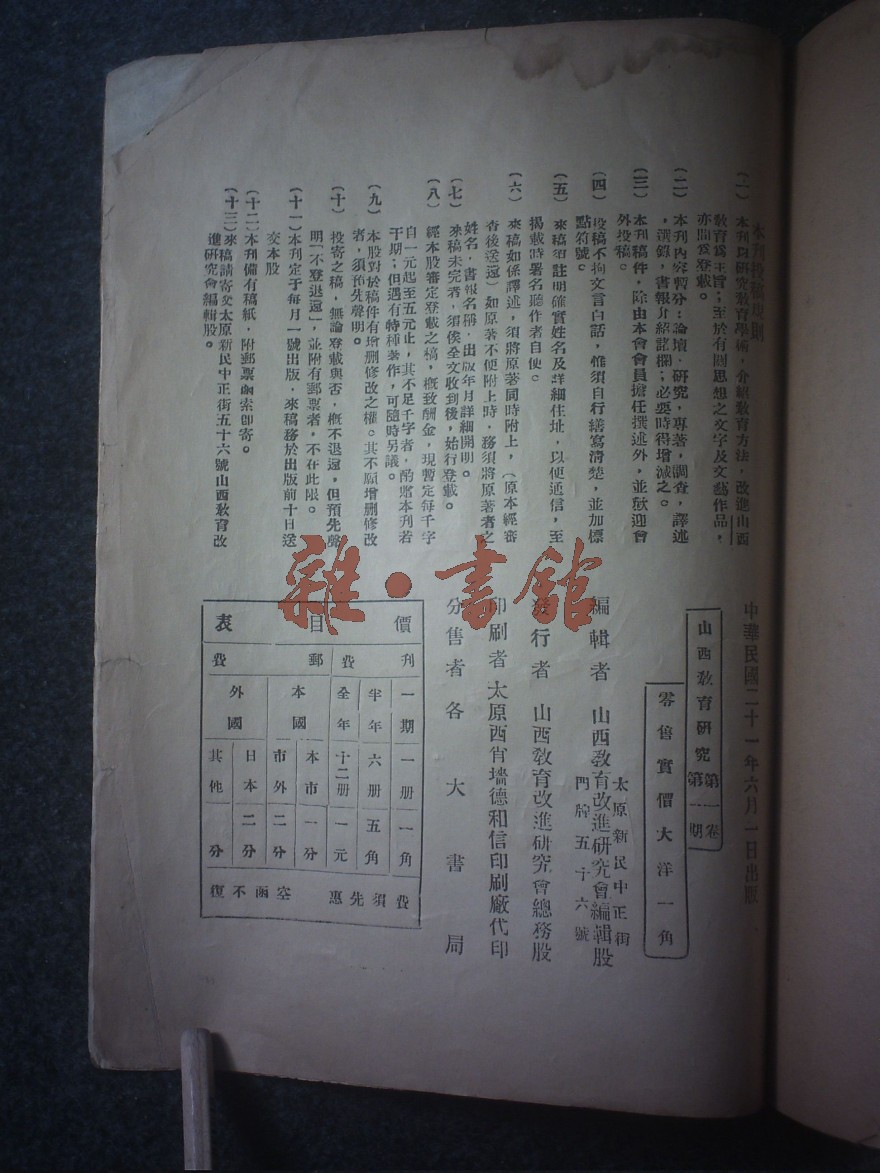 本刊投稿規則
(一) 本刊以研究教育學術,介紹教育方法,改進山西
教育爲主旨;至於有關思想之文字及文藝作品,
亦間爲登載。
(二) 本刊內容暫分:論壇,研究,專著,調查,譯述
,選錄,書報介紹諸欄;必要時得增減之。
(三) 本刊稿件,除由本會會員擔任撰述外,並歡迎會
外投稿。
(四) 投稿不拘文言白話,惟須自行繕寫清楚,並加標
點符號。
(五) 來稿須註明確實姓名及詳細住址,以便通信,至
揭載時署名聽作者自便。
(六) 來稿如係譯述,須將原著同時附上,(原本經審
查後送還)如原著不便附上時,務須將原著者之
姓名,書報名稱,出版年月詳細開明。
(七) 來稿未完者,須俟全文收到後,始行登載。
(八) 經本股審定登載之稿,概致酬金,現暫定每千字
自一元起至五元止,其不足千字者,酌贈本刊若
干期;但遇有特種著作,可隨時另議。
(九) 本股對於稿件有增删修改之權。其不願增删修改
者,須預先聲明。
(十) 投寄之稿,無論登載與否,概不退還,但預先聲
明「不登退還」,並附有郵票者,不在此限。
(十一) 本刊定于每月一號出版,來稿務於出版前十日送
交本股
(十二) 本刊備有稿紙,附郵票函索即寄。
(十三) 來稿請寄交太原新民中正街五十六號山西教育改
進研究會編輯股。
中華民國二十一年六月一日出版
山西教育研究第一卷第一期
零售實價大洋一角
太原新民中正街
門牌五十六號
編輯者 山西教育改進研究會編輯股
發行者 山西教育改進研究會總務股
印刷者 太原西肖墻德和信印刷廠代印
分售者 各大書局
價目表
刊費 郵費
一期一册一角
半年六册五角
全年十二册一元
本國 本市一分
市外二分
外國 日本二分
其他 分
費須先惠 空函不復
雜·書館